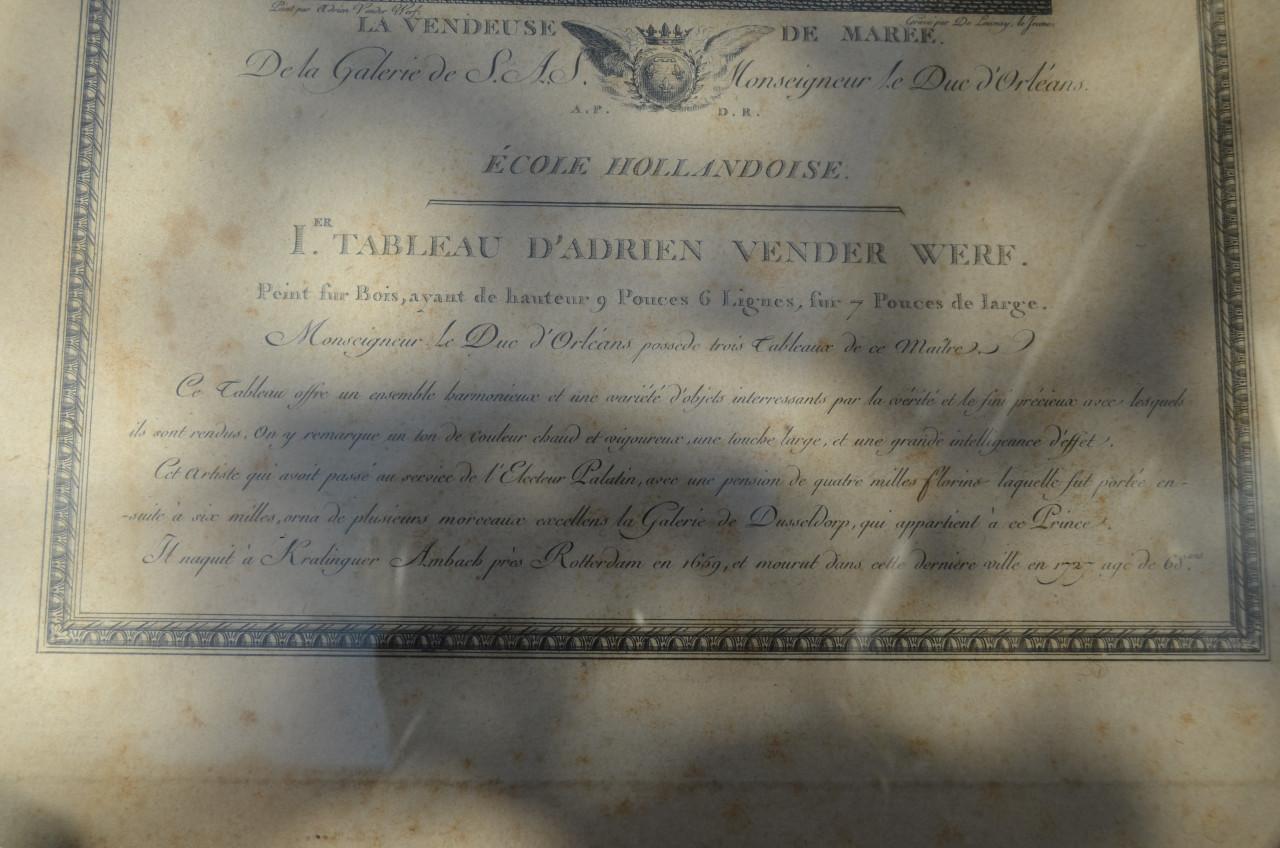 Peint par Adrien Vander Werf.
Gravé par De Launay, le Jeune.
LA VENDEUSE DE MARÉE.
De la Galerie de S.A.S. Monseigneur le Duc d'Orléans.
A.P. D.R.
ÉCOLE HOLLANDOISE.
I.ER TABLEAU D'ADRIEN VENDER WERF.
Peint sur Bois, ayant de hauteur 9 Pouces 6 Lignes, sur 7 Pouces de large.
Monseigneur le Duc d'Orléans possede trois Tableaux de ce Maître.
Ce Tableau offre un ensemble harmonieux et une variété d'objets interressants par la vérité et le fini précieux avec lesquels
ils sont rendus. On y remarque un ton de couleur chaud et vigoureux, une touche large, et une grande intelligence d'effet.
Cet Artiste qui avoit passé au service de l'Electeur Palatin, avec une pension de quatre milles florins laquelle fut portée en-
-suite à six milles, orna de plusieurs morceaux excellens la Galerie de Dusseldorp, qui appartient à ce Prince.
Il naquit à Kralinguer Ambach près Rotterdam en 1659, et mourut dans cette dernière ville en 1727 agé de 68 ans.